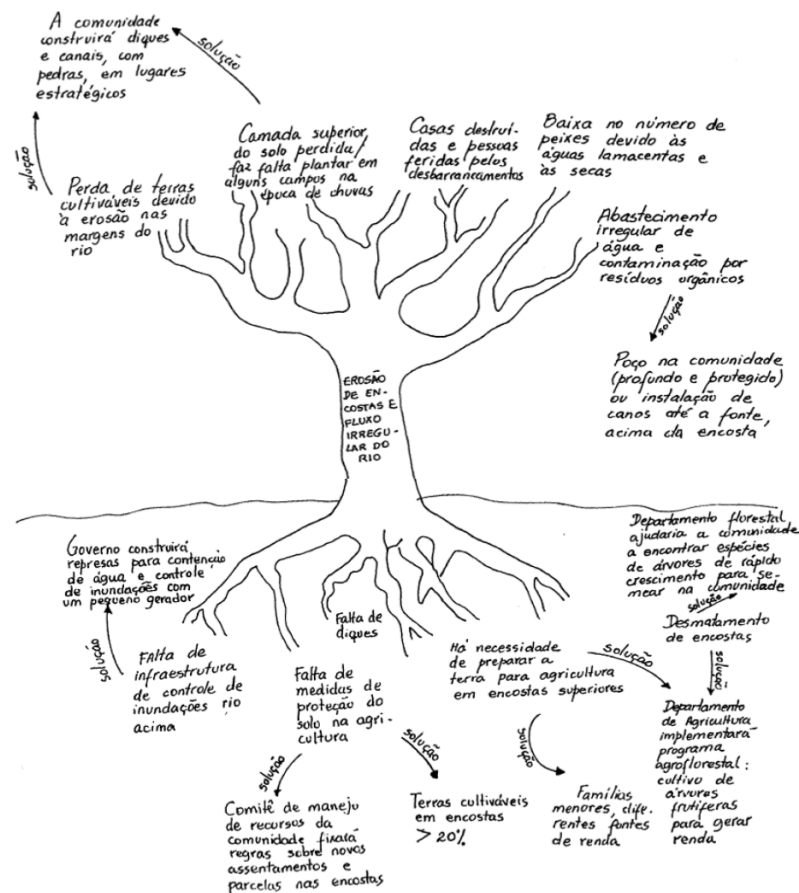 A comunidade
construirá diques
e canais, com
pedras, em lugares
estratégicos
solução
solução
Perda de terras
cultiváveis devido
à erosão nas
margens do
rio
Camada superior
do solo perdida/
faz falta plantar em
alguns campos na
época de chuvas
Casas destruí-
das e pessoas
feridas pelos
desbarrancamentos
Baixa no número de
peixes devido às
águas lamacentas e
às secas
Abastecimento
irregular de
água e
contaminação por
resíduos orgânicos
solução
Poço na comunidade
(profundo e protegido)
ou instalação de
canos até a fonte,
acima da encosta
EROSÃO
DE EN-
COSTAS E
FLUXO
IRREGU-
LAR DO
RIO
Governo construirá
represas para contenção
de água e controle
de inundações com
um pequeno gerador
solução
Falta de
infraestrutura
de controle de
inundações rio
acima
Falta de
diques
Falta de
medidas de
proteção do
solo na agri-
cultura
solução
solução
Comitê de manejo
de recursos da
comunidade fixará
regras sobre novos
assentamentos e
parcelas nas encostas
Terras cultiváveis
em encostas
> 20%
Há necessidade
de preparar a
terra para agricultura
em encostas superiores
solução
solução
Famílias
menores, dife-
rentes fontes
de renda
Departamento florestal
ajudaria a comunidade
a encontrar espécies
de árvores de rápido
crescimento para se-
mear na comunidade
solução
Desmatamento
de encostas
solução
Departamento
de Agricultura
implementará
programa
agroflorestal:
cultivo de
árvores
frutíferas
para gerar
renda